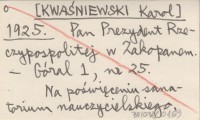 [KWAŚNIEWSKI Karol]
1925. Pan Prezydent Rze-
czypospolitej w Zakopanem.
— Góral 1, nr 25.
Na poświęceniu sana-
torium nauczycielskiego.